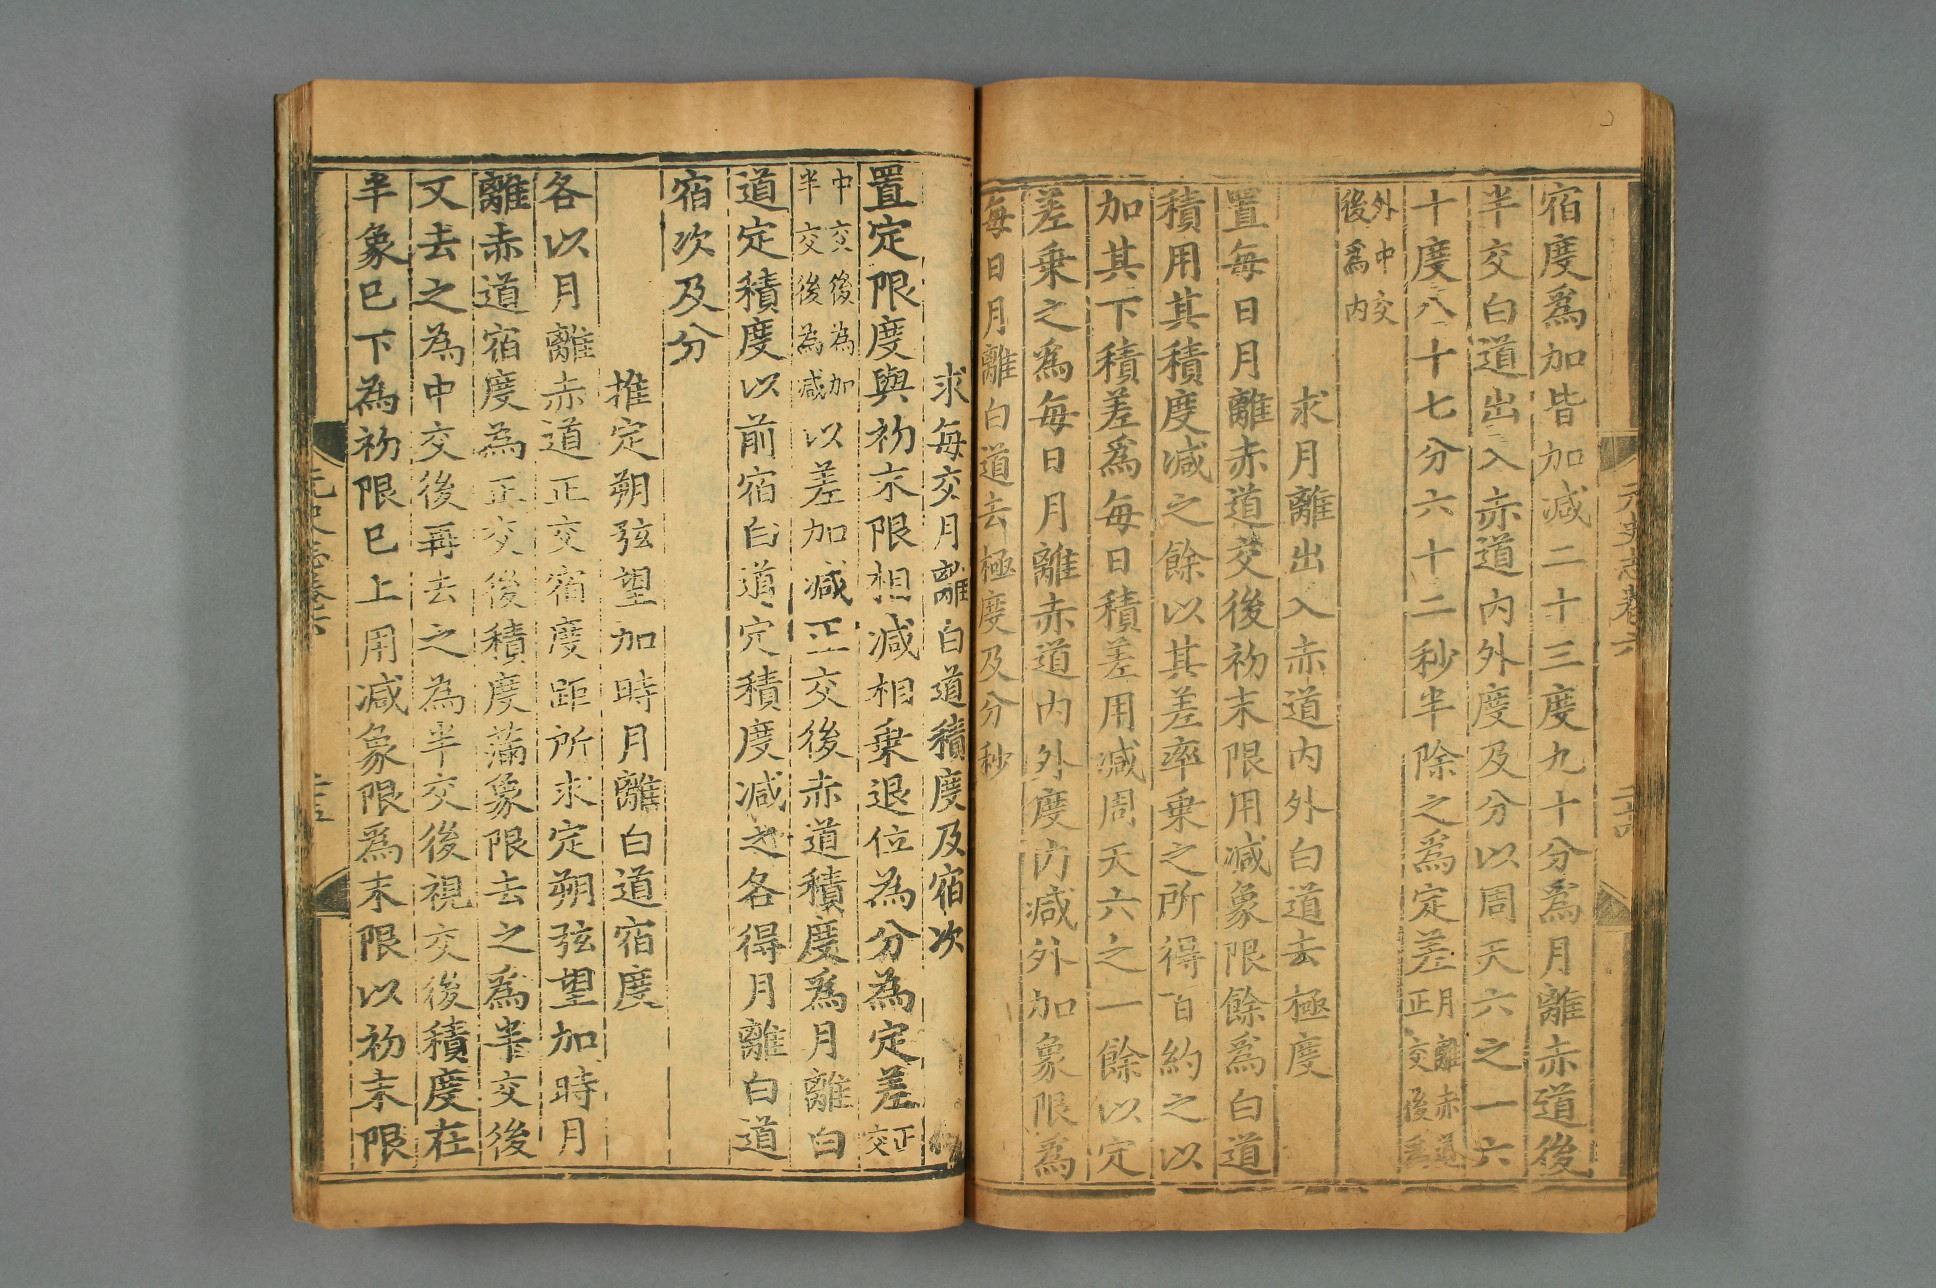 元史志卷六
二十四
宿度爲加皆加減二十三度九十分爲月離赤道後
半交白道出入赤道內外度及分以周天六之一六
十度八十七分六十二秒半除之爲定差月離赤道正交後爲
外中交後爲內
求月離出入赤道內外白道去極度
置每日月離赤道交後初末限用減象限餘爲白道
積用其積度減之餘以其差率乗之所得百約之以
加其下積差爲每日積差用減周天六之一餘以定
差乗之爲每日月離赤道內外度內減外加象限爲
每日月離白道去極度及分秒
求每交月離白道積度及宿次
置定限度與初末限相減相乗退位為分為定差正交
中交後為加半交後為減以差加減正交後赤道積度爲月離白
道定積度以前宿白道定積度減之各得月離白道
宿次及分
推定朔弦望加時月離白道宿度
各以月離赤道正交宿度距所求定朔弦望加時月
離赤道宿度為正交後積度滿象限去之爲半交後
又去之為中交後再去之為半交後視交後積度在
半象已下為初限已上用減象限爲末限以初末限
元史志卷六
二十五